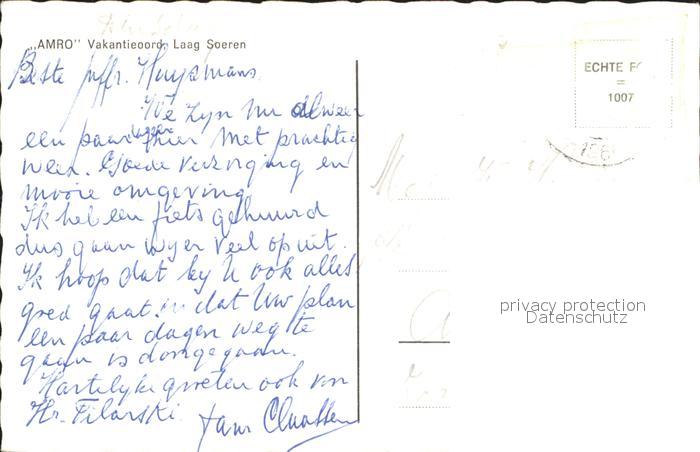 „AMRO” Vakantieoord, Laag Soeren
Beste Juffr. Huysmans.
We zyn nu alweer
een paar dagen hier met prachtig
weer. Goede verzorging en
mooie omgeving.
Ik heb een fiets gehuurd
dus gaan wy er veel op uit.
Ik hoop dat by U ook alles
goed gaat en dat Uw plan
een paar dagen weg te
gaan is doorgegaan.
Hartelyke groeten ook van
Hr. Filarski.
ECHTE FO
=
1007
privacy protection
Datenschutz